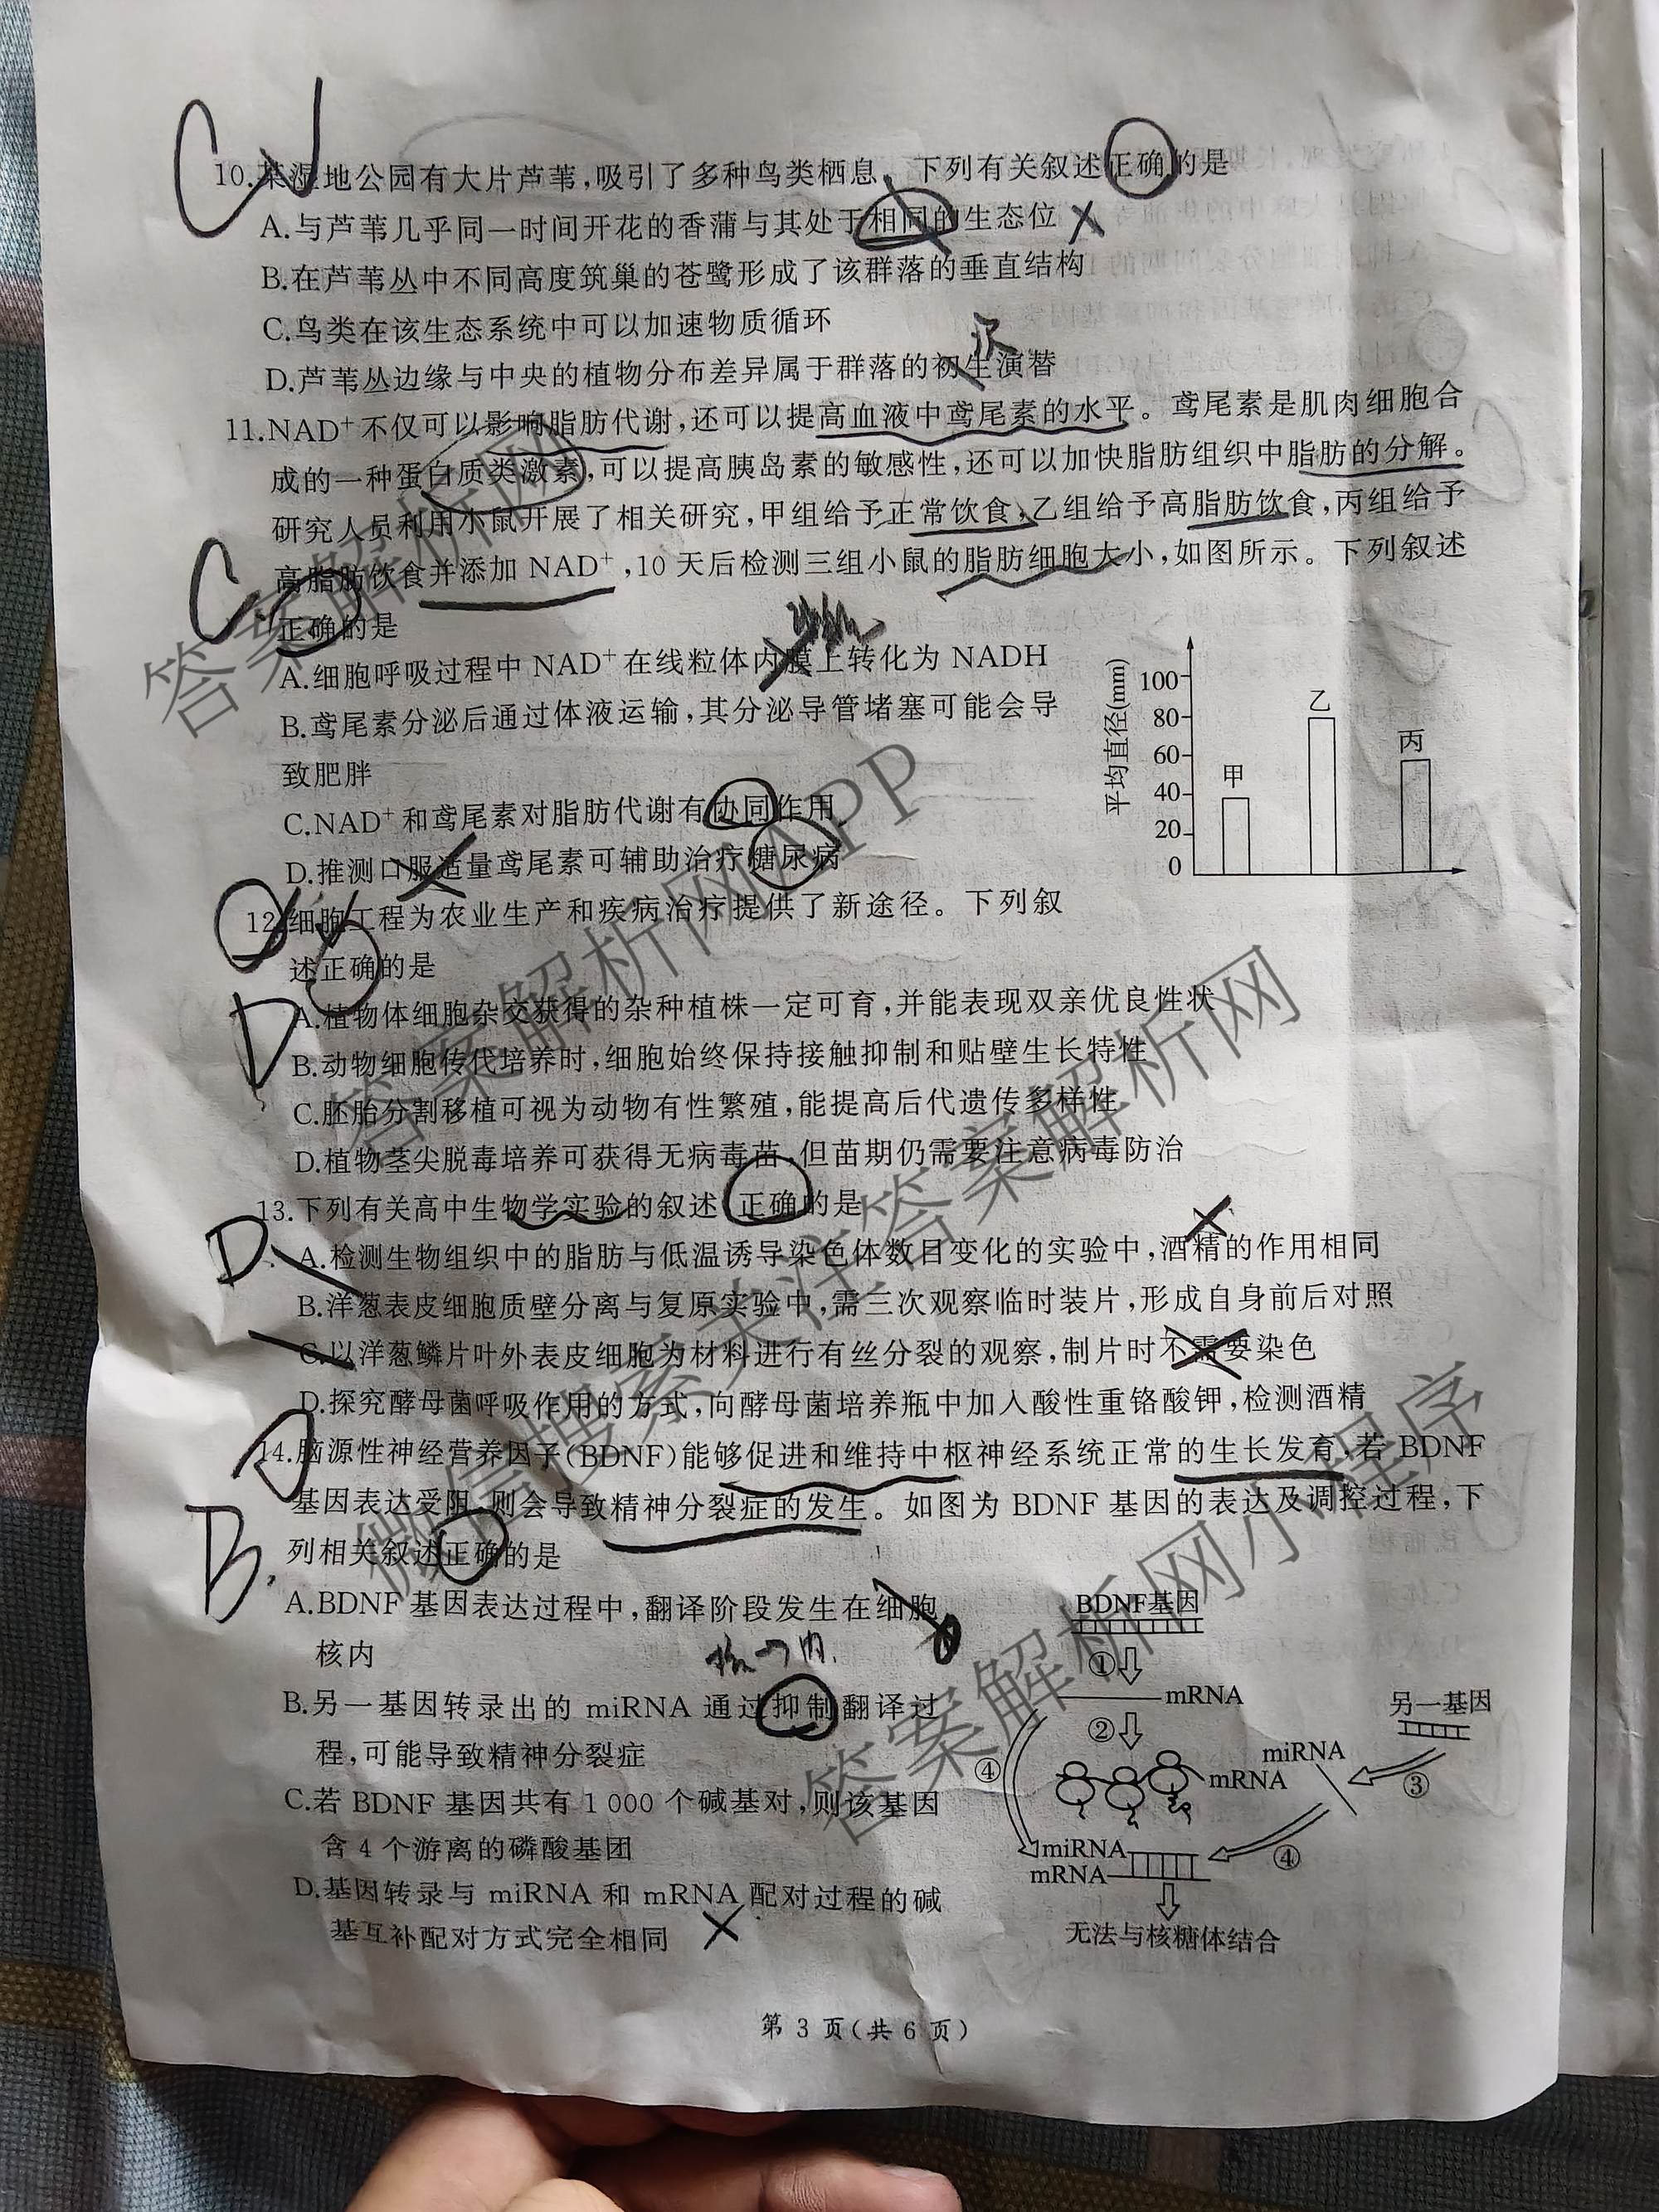 10.某湿地公园有大片芦苇,吸引了多种鸟类栖息。下列有关叙述正确的是
A.与芦苇几乎同一时间开花的香蒲与其处于相同的生态位
B.在芦苇丛中不同高度筑巢的苍鹭形成了该群落的垂直结构
C.鸟类在该生态系统中可以加速物质循环
次
D.芦苇丛边缘与中央的植物分布差异属于群落的初生演替
11.NAD⁺不仅可以影响脂肪代谢,还可以提高血液中鸢尾素的水平。鸢尾素是肌肉细胞合
成的一种蛋白质类激素,可以提高胰岛素的敏感性,还可以加快脂肪组织中脂肪的分解。
研究人员利用小鼠开展了相关研究,甲组给予正常饮食,乙组给予高脂肪饮食,丙组给予
高脂肪饮食并添加 NAD⁺,10 天后检测三组小鼠的脂肪细胞大小,如图所示。下列叙述
正确的是
A.细胞呼吸过程中 NAD⁺在线粒体内膜上转化为 NADH
B.鸢尾素分泌后通过体液运输,其分泌导管堵塞可能会导
致肥胖
C.NAD⁺和鸢尾素对脂肪代谢有协同作用
D.推测口服适量鸢尾素可辅助治疗糖尿病
平均直径(mm)
100
80
60
40
20
0
甲
乙
丙
12.细胞工程为农业生产和疾病治疗提供了新途径。下列叙
述正确的是
A.植物体细胞杂交获得的杂种植株一定可育,并能表现双亲优良性状
B.动物细胞传代培养时,细胞始终保持接触抑制和贴壁生长特性
C.胚胎分割移植可视为动物有性繁殖,能提高后代遗传多样性
D.植物茎尖脱毒培养可获得无病毒苗,但苗期仍需要注意病毒防治
13.下列有关高中生物学实验的叙述,正确的是
A.检测生物组织中的脂肪与低温诱导染色体数目变化的实验中,酒精的作用相同
B.洋葱表皮细胞质壁分离与复原实验中,需三次观察临时装片,形成自身前后对照
C.以洋葱鳞片叶外表皮细胞为材料进行有丝分裂的观察,制片时不需要染色
D.探究酵母菌呼吸作用的方式,向酵母菌培养瓶中加入酸性重铬酸钾,检测酒精
14.脑源性神经营养因子(BDNF)能够促进和维持中枢神经系统正常的生长发育,若 BDNF
基因表达受阻,则会导致精神分裂症的发生。如图为 BDNF 基因的表达及调控过程,下
列相关叙述正确的是
A.BDNF 基因表达过程中,翻译阶段发生在细胞
核内
B.另一基因转录出的 miRNA 通过抑制翻译过
程,可能导致精神分裂症
C.若 BDNF 基因共有 1 000 个碱基对,则该基因
含 4 个游离的磷酸基团
D.基因转录与 miRNA 和 mRNA 配对过程的碱
基互补配对方式完全相同
BDNF基因
①
mRNA
②
另一基因
miRNA
③
④
mRNA
miRNA
④
mRNA
无法与核糖体结合
第 3 页(共 6 页)
C
C
D
D
B.
答案解析网
答案解析网APP
微信搜索关注答案解析网
答案解析网小程序